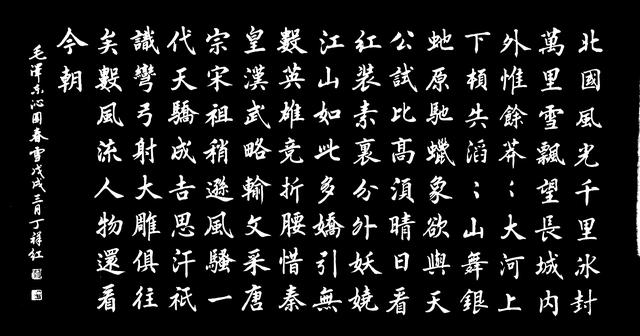 北國風光千里冰封
萬里雪飄望長城内
外惟餘莽〻大河上
下頓失滔〻山舞銀
虵原馳蠟象欲與天
公試比高須晴日看
紅裝素裹分外妖嬈
江山如此多嬌引無
數英雄竞折腰惜秦
皇漢武略輸文采唐
宗宋祖稍遜風騷一
代天驕成吉思汗祇
識彎弓射大雕俱往
矣數風流人物還看
今朝
毛澤东沁园春雪戊戌三月丁祥红